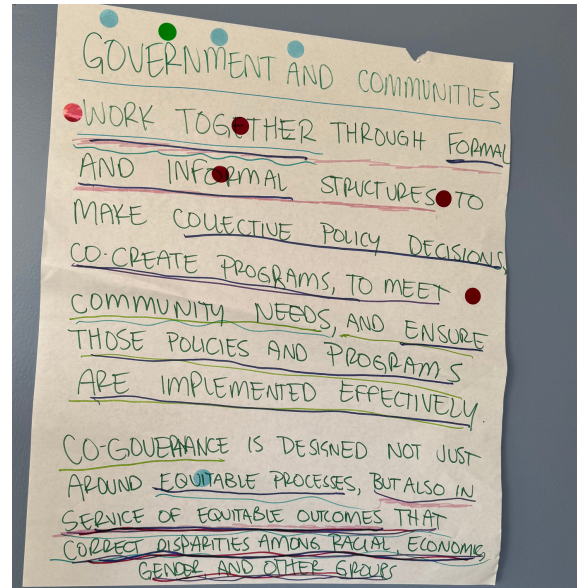 GOVERNMENT AND COMMUNITIES
WORK TOGETHER THROUGH FORMAL
AND INFORMAL STRUCTURES TO
MAKE COLLECTIVE POLICY DECISIONS,
CO-CREATE PROGRAMS, TO MEET
COMMUNITY NEEDS, AND ENSURE
THOSE POLICIES AND PROGRAMS
ARE IMPLEMENTED EFFECTIVELY.
CO-GOVERNANCE IS DESIGNED NOT JUST
AROUND EQUITABLE PROCESSES, BUT ALSO IN
SERVICE OF EQUITABLE OUTCOMES THAT
CORRECT DISPARITIES AMONG RACIAL, ECONOMIC,
GENDER AND OTHER GROUPS